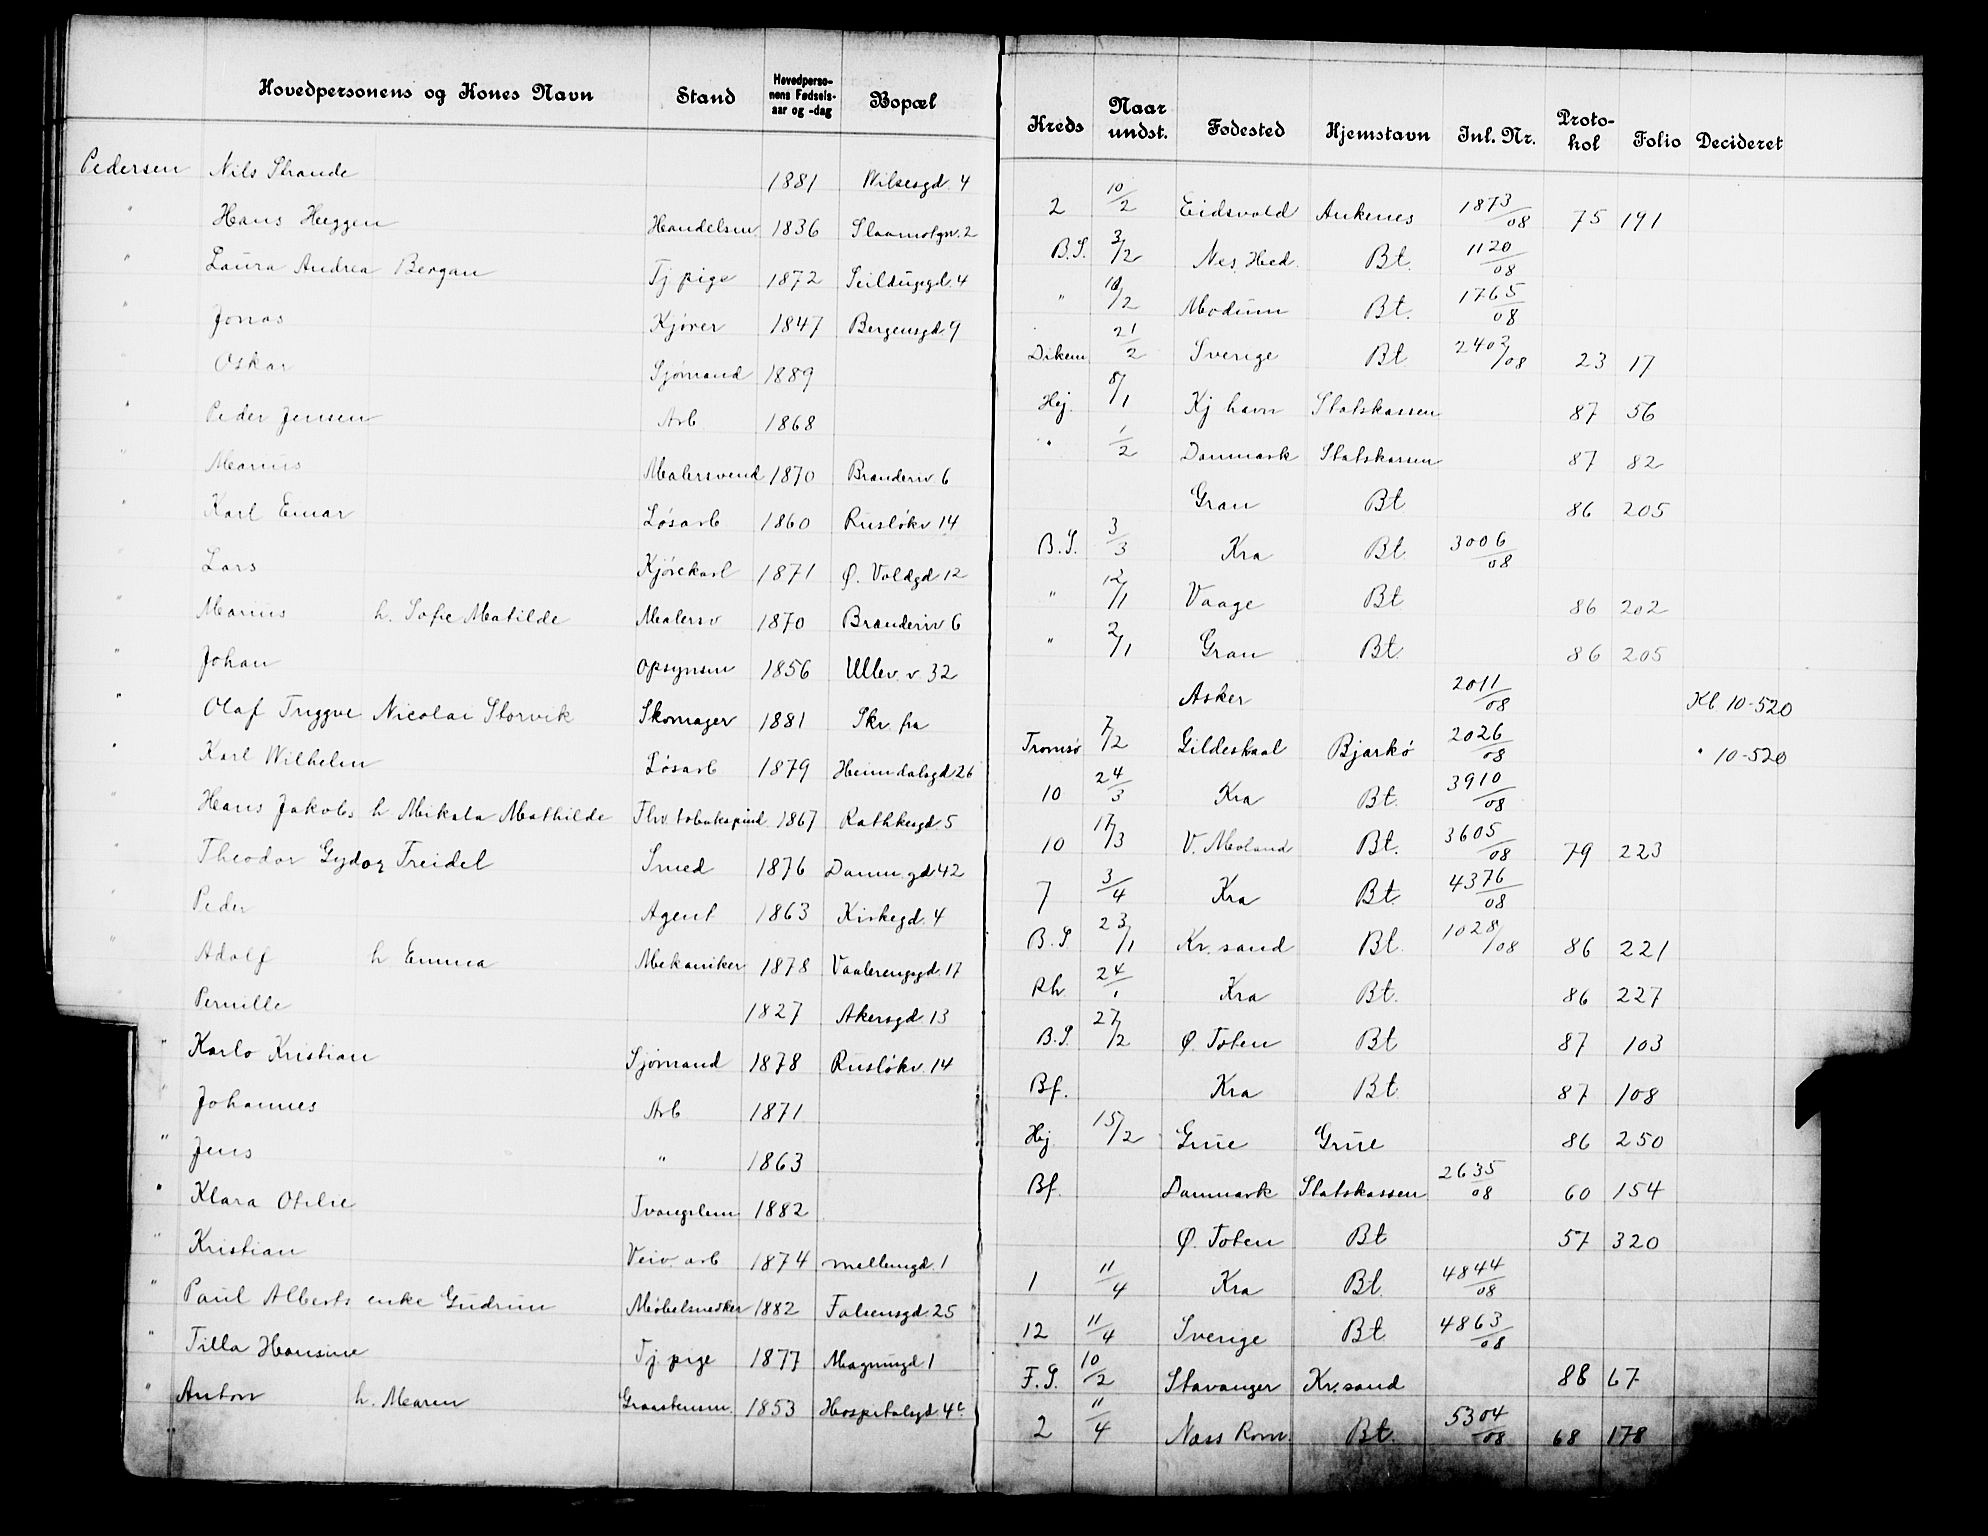 Hovedpersonens og Kones Navn Stand Hovedpersonens Fødsels-aar og -dag Bopæl Kreds Naar undst. Fødested Hjemstavn Inl. Nr. Protokol Folio Decideret
Pedersen Nils Strande 1881 Wilsesgd. 4 2 10/2 Eidsvold Ankenes 1873/08 75 191
" Hans Heggen Handelsm. 1836 2 B.S. 3/2 Nes, Hed. Bt. 1120/08
" Laura Andrea Bergan Tj pige 1872 Seildugsgd. 4 " /2 Modum Bt. 1765/08
" Jonas Kjører 1847 Bergensgd 9 Dikem. 21/2 Sverige Bt 2403/08 23 17
Oskar Sjømand 1889 Hej. 8/1 Kj havn Statskassen 87 56
" Peder Jensen Arb. 1868 " 1/2 Danmark Statskassen 87 82
" Marius Malersvend 1870 Branderiv 6 Gran Bt 86 205
" Karl Einar Løsarb 1860 Rusløkv 14 B.S. 3/3 Kra Bt 3006/08
" Lars Kjørekarl 1871 Ø. Voldgd 12 " 12/1 Vaage Bt 86 202
" Marius h. Sofie Matilde Malersv 1870 Branderiv 6 " 2/1 Gran Bt. 86 205
" Johan Opsynsm 1856 Ullev. v. 32 Asker 2011/08 Kl 10-520
" Olaf Tryggve Nicolai Storvik Skomager 1881 Skr. fra Tromsø 7/2 Gildeskaal Bjarkø 2026/08 " 10-520
" Karl Wilhelm Løsarb 1879 Heimdalsgd 26 10 24/3 Kra Bt. 3910/08
" Hans Jakobs h Mikala Mathilde Fhv. tobakspind. 1867 Rathkesgd 5 10 17/3 V. Moland Bt. 3605/08 79 223
" Theodor Gydor Treidel Smed 1876 Danm. gd 42 7 3/4 Kra Bt. 4376/08
" Peder Agent 1863 Kirkegd. 4 B.S 23/1 Kr. sand Bt. 1028/08 86 221
" Adolf h Emma Mekaniker 1878 Vaalerengsgd. 17 Rh. 24/1 Kra Bt. 86 227
Pernille 1827 Akersgd. 13 B.S. 27/2 Ø. Toten Bt 87 103
" Karlo Kristian Sjømand 1878 Rusløkv. 14 Bf. Kra Bt 87 108
" Johannes Arb 1871 Hej 15/2 Grue Grue 86 250
" Jens " 1863 Bf. Danmark Statskassen 2635/08 60 154
" Klara Otelie Tvangslem 1882 Ø. Toten Bt 57 320
" Kristian Veiv. arb 1874 mellemgd. 1 1 11/4 Kra Bt. 4844/08
" Paul Alberts enke Gudrun Møbelsnedker 1882 Falsensgd. 25 12 11/4 Sverige Bt 4863/08
" Tilla Hansine Tj. pige 1877 Magnusgd 1 F.S. 10/2 Stavanger Kr.sand 88 67
" Anton h. Maren Graastensm. 1853 Hospitalsgd 4c 2 11/4 Næss Rom. Bt. 5304/08 68 178